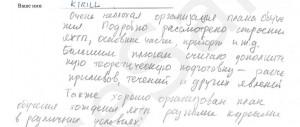 Ваше имя KIRILL
Очень неплохая организация плана обуче
ния. Подробно рассмотрено строение
яхты, основные части, приборы и т.д.
Большим плюсом считаю дополнитель
ную теоретическую подготовку – расчет
приливов, течений и других явлений
Также хорошо организован план
обучения вождения яхты разными курсами
в различных условиях.